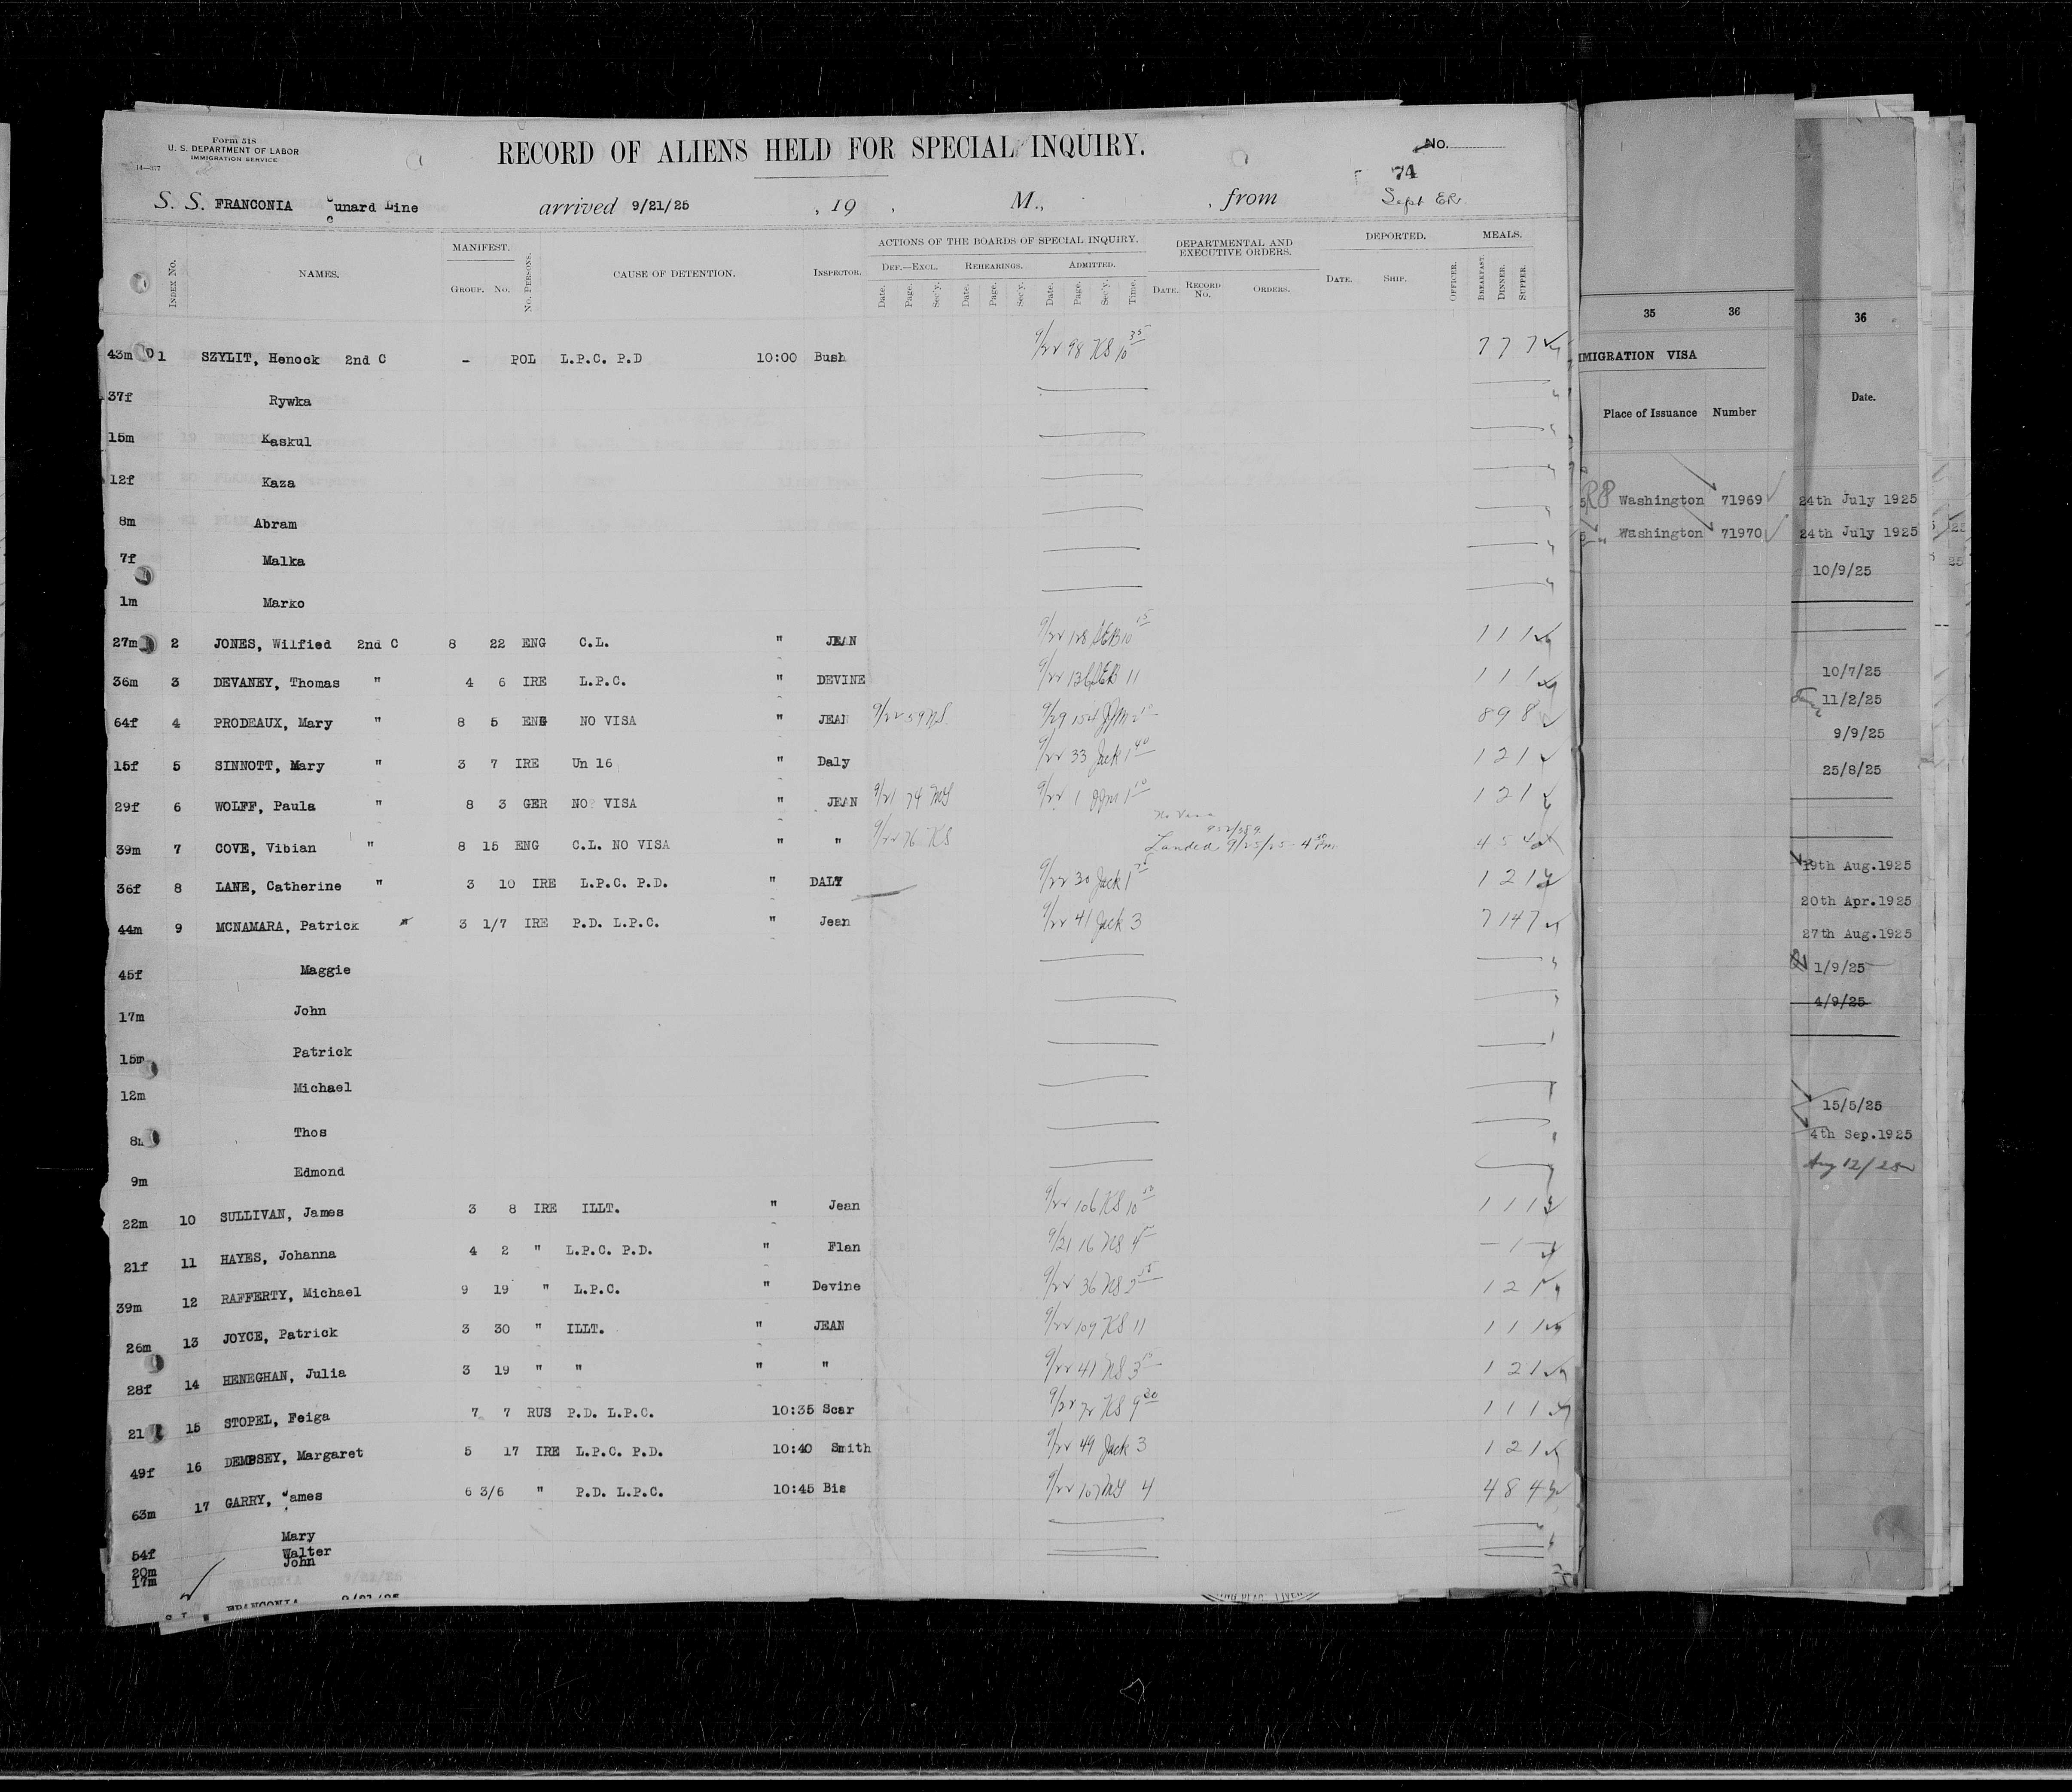 Form 518
U. S. DEPARTMENT OF LABOR
IMMIGRATION SERVICE
RECORD OF ALIENS HELD FOR SPECIAL INQUIRY.
No.
74
S. S. FRANCONIA Cunard Line arrived 9/21/25 , 19 , M., , from Sept
INDEX No. NAMES. MANIFEST. GROUP. No. No. PERSONS. CAUSE OF DETENTION. INSPECTOR. ACTIONS OF THE BOARDS OF SPECIAL INQUIRY. DEPARTMENTAL AND EXECUTIVE ORDERS. DEPORTED. MEALS.
DEF.—EXCL. REHEARINGS. ADMITTED.
Date. Page. Sec'y. Date. Page. Sec'y. Date. Page. Sec'y. Time. DATE. RECORD No. ORDERS. DATE. SHIP. OFFICER. BREAKFAST. DINNER. SUPPER.
43m 1 SZYLIT, Henock 2nd C - POL L.P.C. P.D 10:00 Bush 9/22 98 KS 10 35 7 7 7
37f Rywka
15m Kaskul
12f Kaza
8m Abram
7f Malka
1m Marko
27m 2 JONES, Wilfied 2nd C 8 22 ENG C.L. " JEAN 9/22 128 10 15 1 1 1
36m 3 DEVANEY, Thomas " 4 6 IRE L.P.C. " DEVINE 9/22 136 11 1 1 1
64f 4 PRODEAUX, Mary " 8 5 ENG NO VISA " JEAN 9/22 59 9/29 154 8 9 8
15f 5 SINNOTT, Mary " 3 7 IRE Un 16 " Daly 9/22 33 Jack 1 40 1 2 1
29f 6 WOLFF, Paula " 8 3 GER NO VISA " JEAN 9/21 74 9/22 1 1 2 1
39m 7 COVE, Vibian " 8 15 ENG C.L. NO VISA " " 9/22 76 KS No Visa Landed 9/25/25 4 5 4
36f 8 LANE, Catherine " 3 10 IRE L.P.C. P.D. " DALY 9/22 30 Jack 1 1 2 1
44m 9 MCNAMARA, Patrick " 3 1/7 IRE P.D. L.P.C. " Jean 9/22 41 Jack 3 7 14 7
45f Maggie
17m John
15m Patrick
12m Michael
8 Thos
9m Edmond
22m 10 SULLIVAN, James 3 8 IRE ILLT. " Jean 9/22 106 KS 10 1 1 1
21f 11 HAYES, Johanna 4 2 " L.P.C. P.D. " Flan 9/21 16 KS 4 — 1 —
39m 12 RAFFERTY, Michael 9 19 " L.P.C. " Devine 9/22 36 KS 2 1 2 1
26m 13 JOYCE, Patrick 3 30 " ILLT. " JEAN 9/22 109 KS 11 1 1 1
28f 14 HENEGHAN, Julia 3 19 " " " " 9/22 41 KS 3 1 2 1
21 15 STOPEL, Feiga 7 7 RUS P.D. L.P.C. 10:35 Scar 9/22 72 KS 9 30 1 1 1
49f 16 DEMPSEY, Margaret 5 17 IRE L.P.C. P.D. 10:40 Smith 9/22 49 Jack 3 1 2 1
63m 17 GARRY, James 6 3/6 " P.D. L.P.C. 10:45 Bis 9/22 107 4 4 8 4
Mary
54f Walter
20m John
17m
FRANCONIA 9/21/25
35 36
IMMIGRATION VISA
Place of Issuance Number
Washington 71969
Washington 71970
36
Date.
24th July 1925
24th July 1925
10/9/25
10/7/25
11/2/25
9/9/25
25/8/25
19th Aug.1925
20th Apr.1925
27th Aug.1925
1/9/25
4/9/25
15/5/25
4th Sep.1925
Aug 12/25